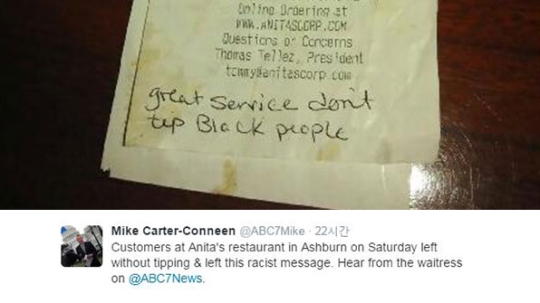 Online Ordering at
WWW.ANITASCORP.COM
Questions or Concerns
Thomas Tellez, President
tommy@anitascorp.com
great service don't
tip Black people
Mike Carter-Conneen @ABC7Mike · 22시간
Customers at Anita's restaurant in Ashburn on Saturday left
without tipping & left this racist message. Hear from the waitress
on @ABC7News.